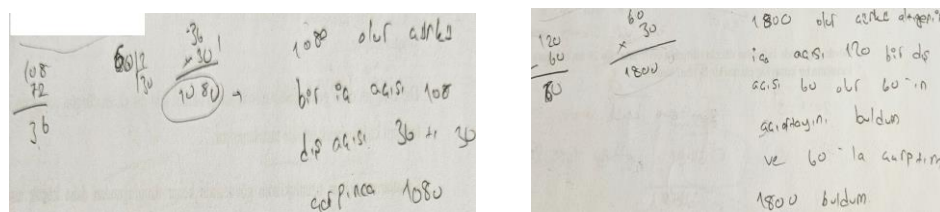 108
72
36
60/2
30
36
x 30
1080 →
1080 olur çünkü
bir iç açısı 108
dış açısı 36 tı 30
çarpınca 1080
120
- 60
60
60
x 30
1800
1800 olur çünkü
iç açısı 120 bir dış
açısı 60 olur 60 ın
açıortayını buldum
ve 60 la çarptım
1800 buldum